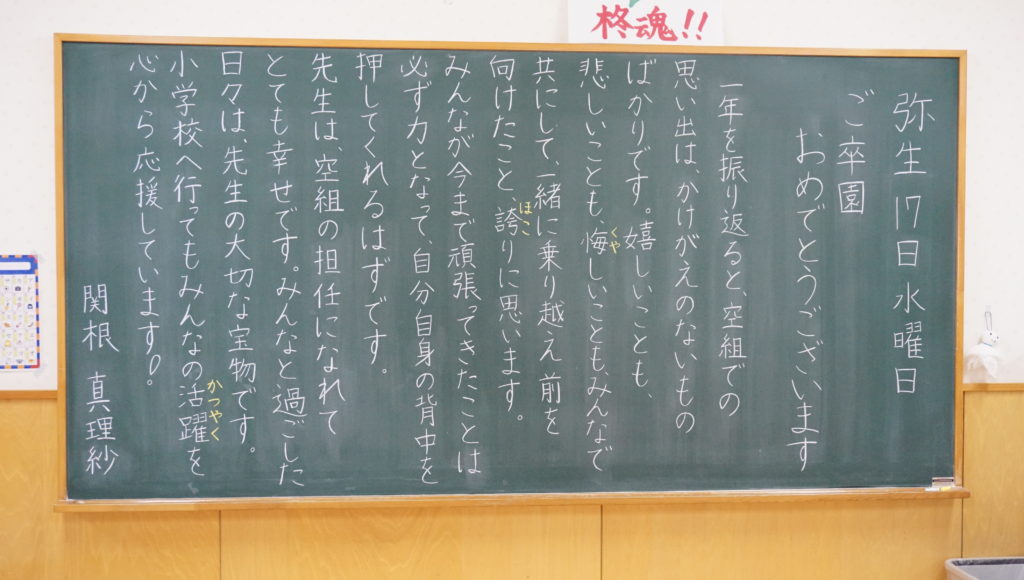 柊魂!!
弥生17日水曜日
ご卒園
おめでとうございます
一年を振り返ると、空組での
思い出は、かけがえのないもの
ばかりです。嬉しいことも、
悲しいことも、悔しいことも、みんなで
くや
共にして、一緒に乗り越え前を
向けたこと、誇りに思います。
ほこ
みんなが今まで頑張ってきたことは
必ず力となって、自分自身の背中を
押してくれるはずです。
先生は、空組の担任になれて
とても幸せです。みんなと過ごした
日々は、先生の大切な宝物です。
小学校へ行ってもみんなの活躍を
かつやく
心から応援しています。
関根 真理紗